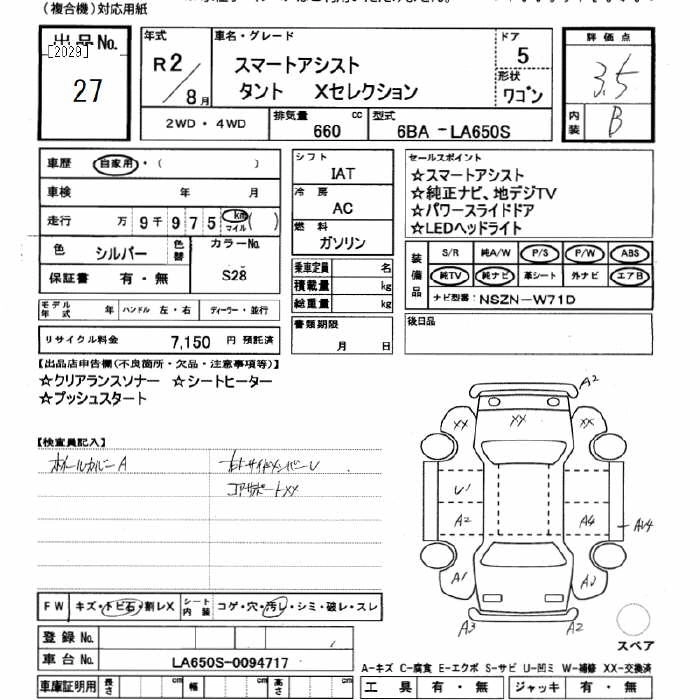 (複合機)対応用紙
出品No.
[2029]
27
年式
R2/8月
車名・グレード
スマートアシスト
タント Xセレクション
ドア
5
形状
ワゴン
評価点
3.5
内装
B
2WD・4WD
排気量
660 cc
型式
6BA -LA650S
車歴 自家用・( )
車検 年 月
走行 万 9千 9 7 5 km マイル ( )
色 シルバー
色替
カラーNo.
S28
保証書 有・無
モデル年式 年 ハンドル 左・右 ディーラー・並行
リサイクル料金 7,150 円 預託済
シフト
IAT
冷房
AC
燃料
ガソリン
乗車定員 名
積載量 kg
総重量 kg
書類期限
月 日
セールスポイント
☆スマートアシスト
☆純正ナビ、地デジTV
☆パワースライドドア
☆LEDヘッドライト
装備品
S/R 純A/W P/S P/W ABS
純TV 純ナビ 革シート 外ナビ エアB
ナビ型番: NSZN-W71D
後日品
【出品店申告欄(不良箇所・欠品・注意事項等)】
☆クリアランスソナー ☆シートヒーター
☆プッシュスタート
【検査員記入】
ホイールカバーA
右サイドメンバーU
コアサポートXX
A2
XX XX XX
U1
A2 A4 AU4
A1
A3 A2
スペア
FW キズ・トビ石・割レX
シート内装 コゲ・穴・汚レ・シミ・破レ・スレ
登録No.
車台No. LA650S-0094717
車庫証明用 長さ cm 幅 cm 高さ cm
A-キズ C-腐食 E-エクボ S-サビ U-凹ミ W-補修 XX-交換済
工具 有・無 ジャッキ 有・無